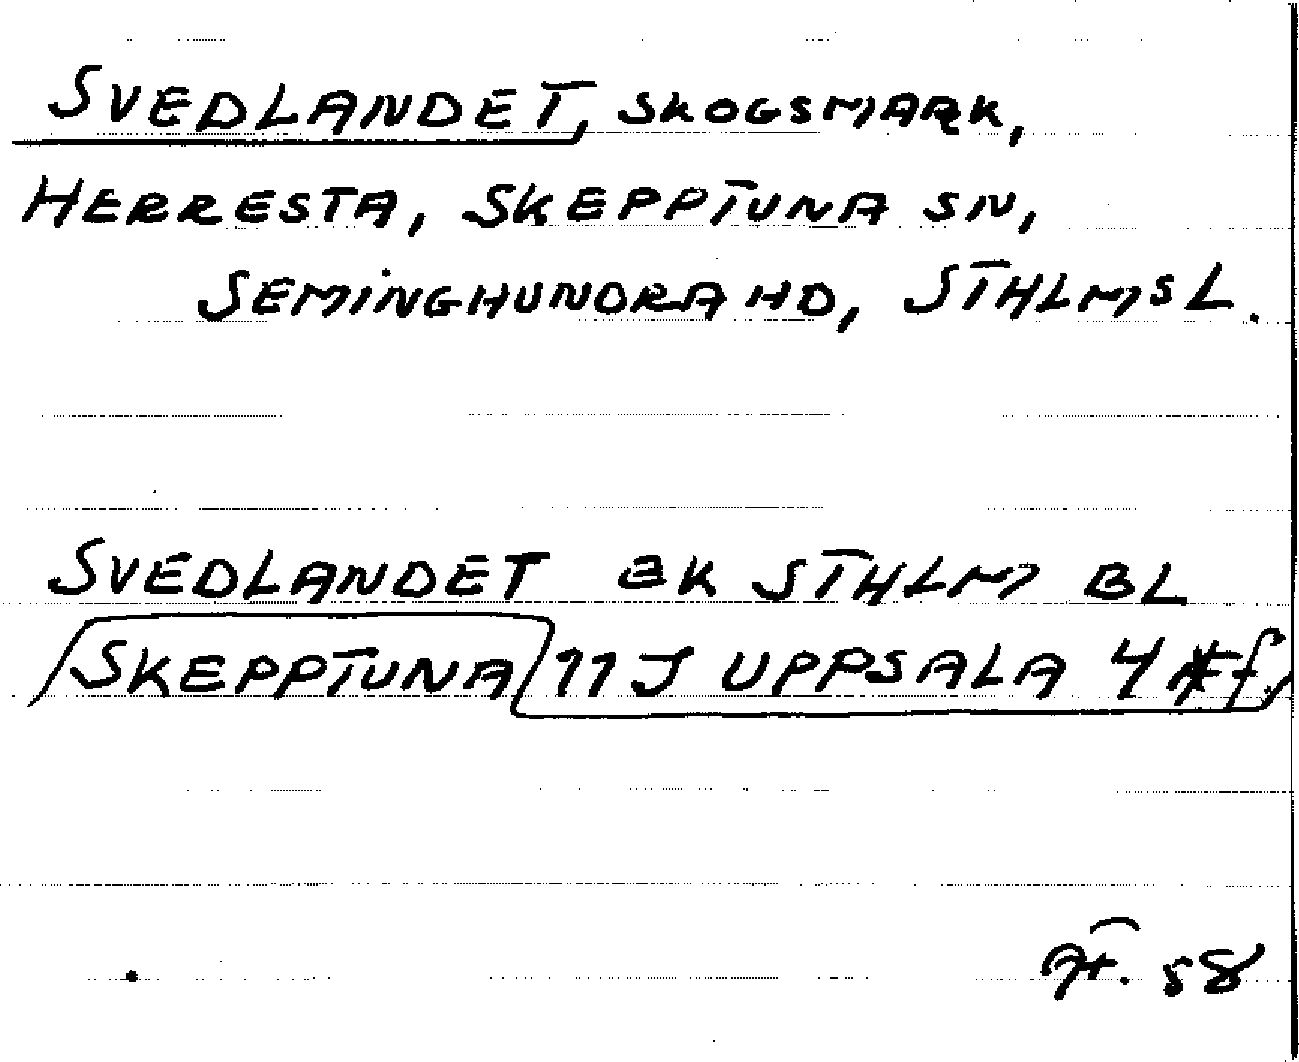 SVEDLANDET, SKOGSMARK,
HERRESTA, SKEPPTUNA SN,
SEMINGHUNDRA HD, STHLMS L.
SVEDLANDET EK STHLM BL
SKEPPTUNA 11J UPPSALA 4 f
58